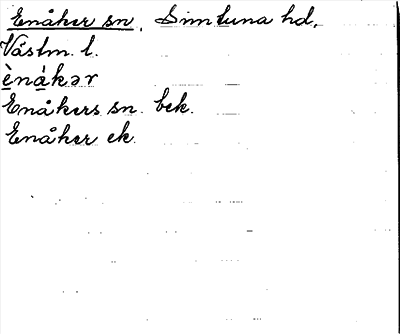 Enåker sn, Simtuna hd,
Västm. l.
ènákər
Enåkers sn. bek.
Enåker ek.